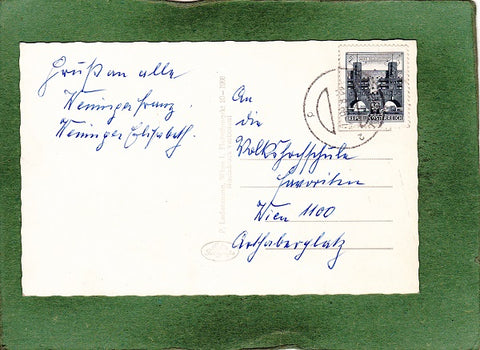 Gruß an alle
Weninger Franz.
Weninger Elisabeth.
An
die
Volkshochschule
Favoriten
Wien 1100
Arthaberplatz
REPUBLIK ÖSTERREICH